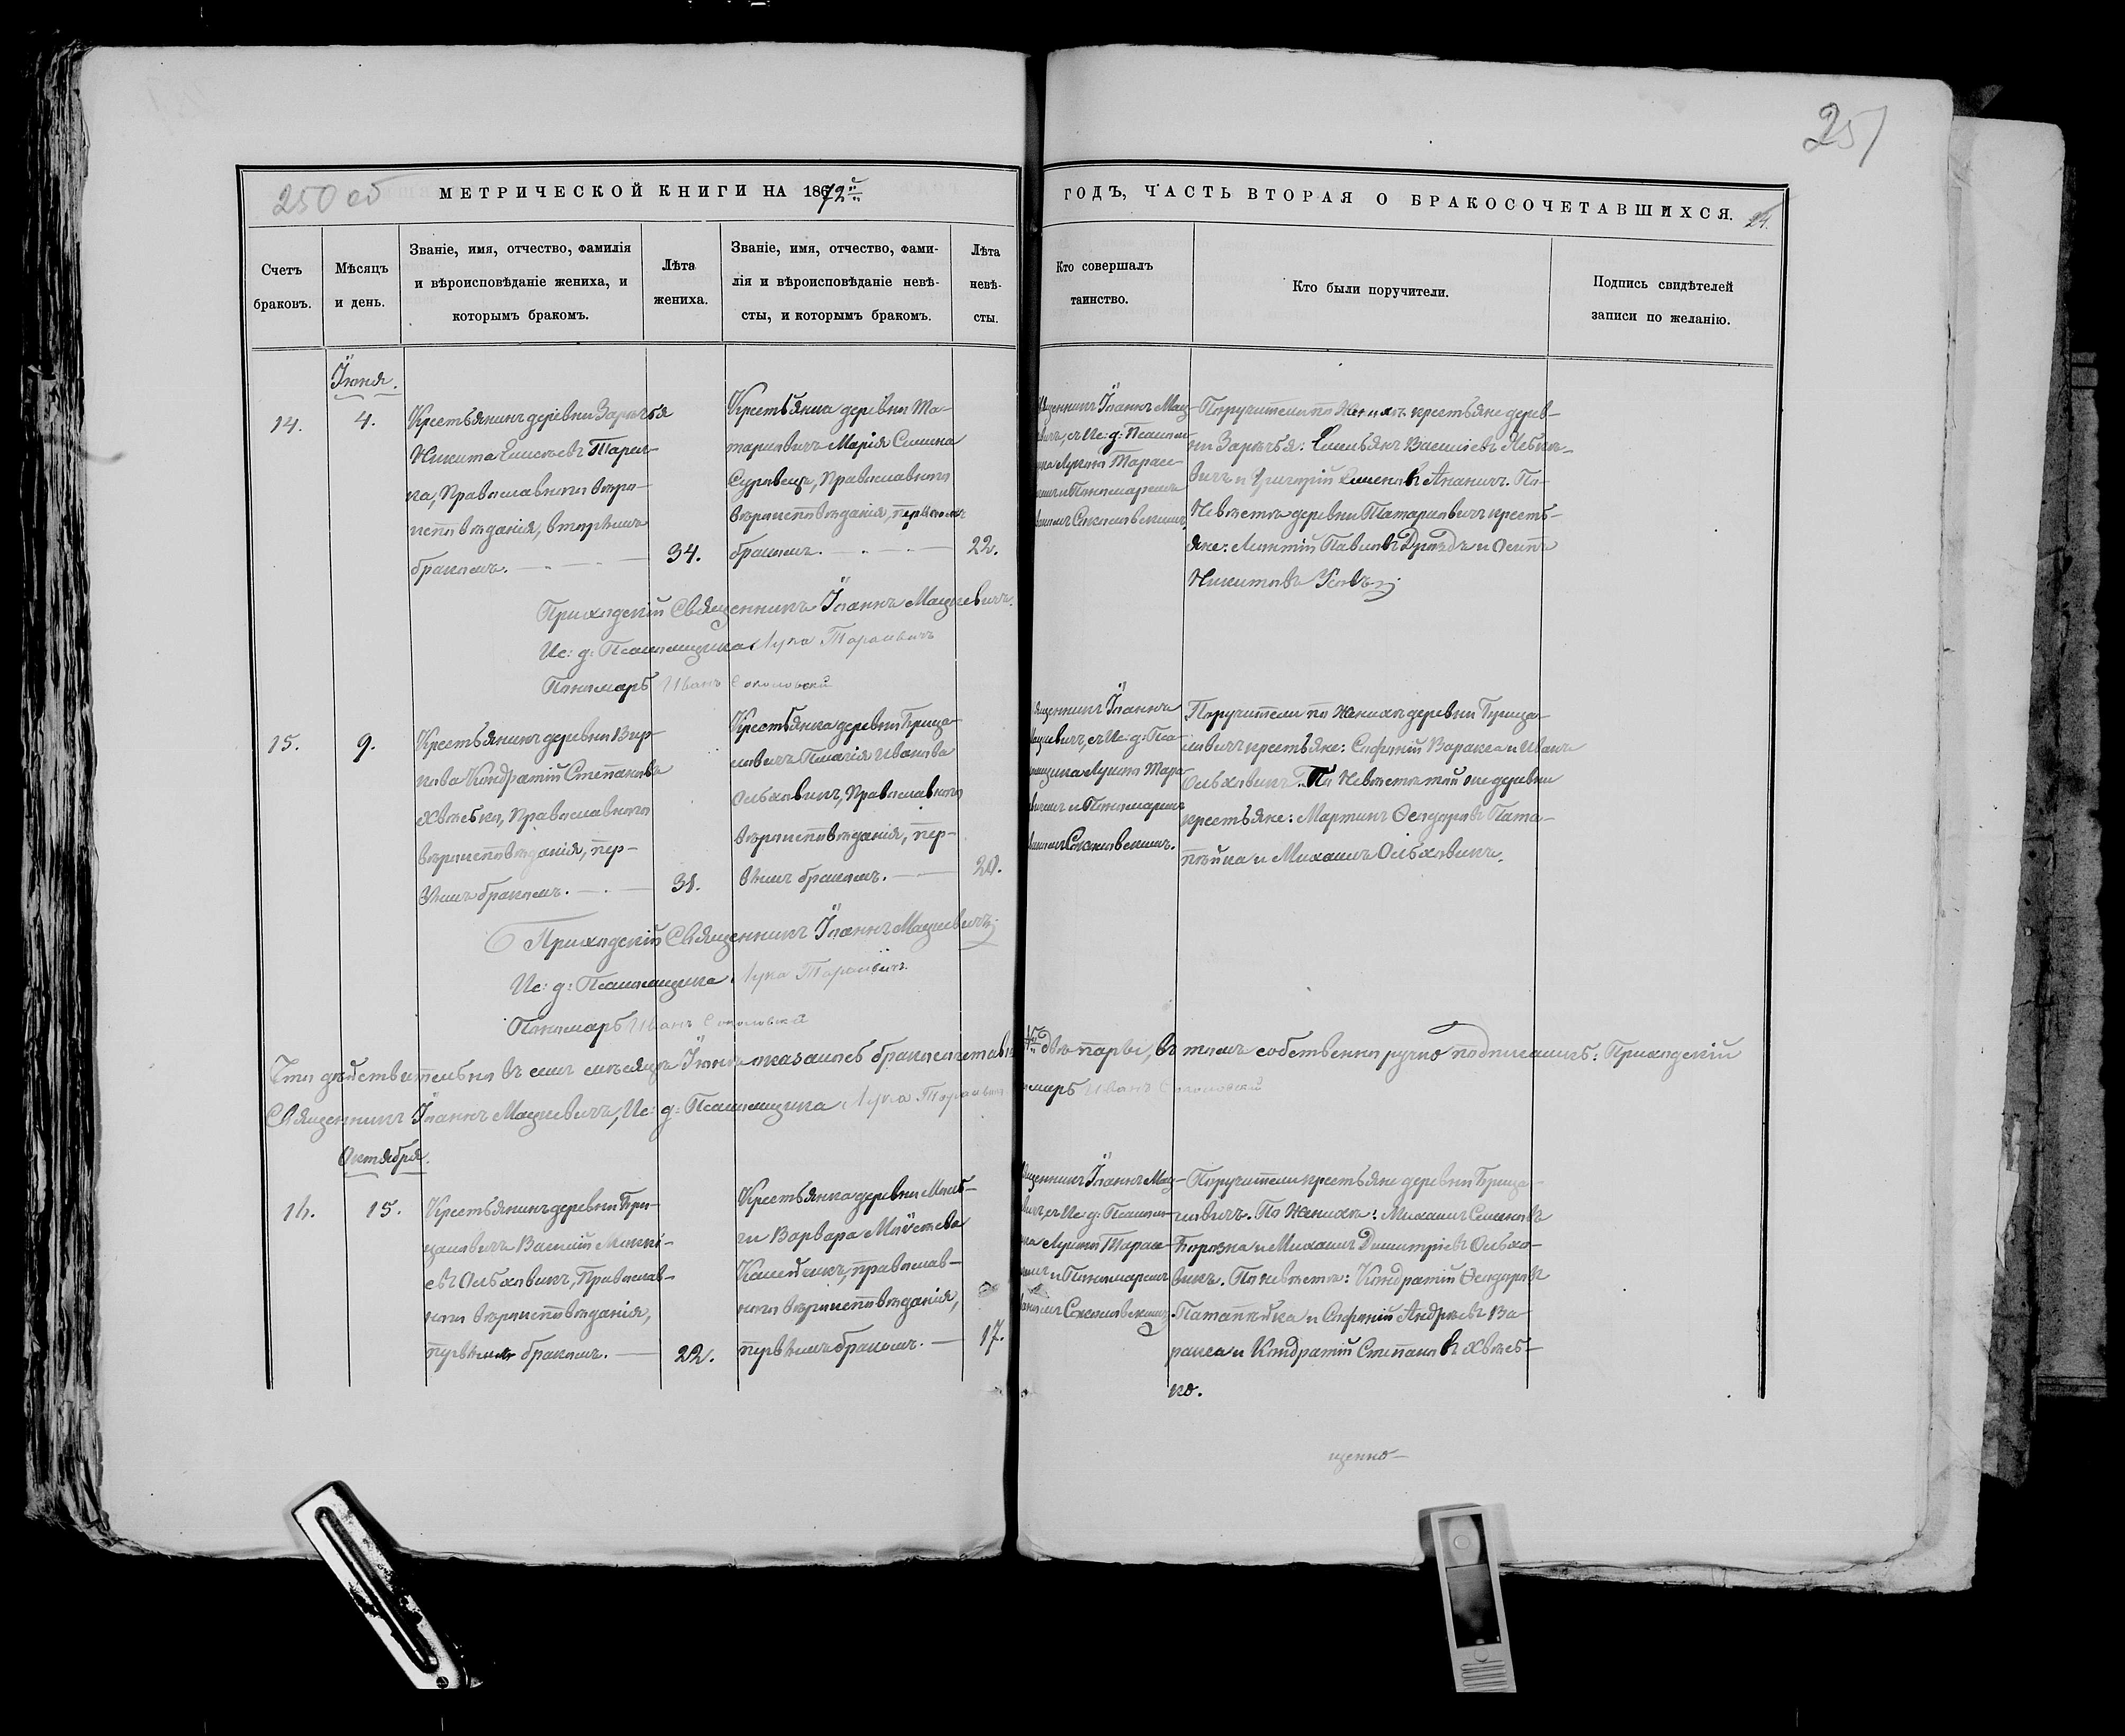 251
250 об
МЕТРИЧЕСКОЙ КНИГИ НА 1872й
ГОДЪ, ЧАСТЬ ВТОРАЯ О БРАКОСОЧЕТАВШИХСЯ.
24.
Счетъ
браковъ.
Мѣсяцъ
и день.
Званіе, имя, отчество, фамилія
и вѣроисповѣданіе жениха, и
которымъ бракомъ.
Лѣта
жениха.
Званіе, имя, отчество, фами-
лія и вѣроисповѣданіе невѣ-
сты, и которымъ бракомъ.
Лѣта
невѣ-
сты.
Кто совершалъ
таинство.
Кто были поручители.
Подпись свидѣтелей
записи по желанію.
Іюня.
14.
4.
Крестьянинъ деревни Зарѣчья
Никита Елисѣевъ
на, Православнаго вѣро-
исповѣданія, вторымъ
бракомъ.
34.
Крестьянка деревни Та-
тариновичъ Марія Симина
Суравецъ, Православнаго
вѣроисповѣданія, первымъ
бракомъ.
22.
Священникъ Іоаннъ Мац-
евичъ, съ Ис: д: Псалом-
щика Лукою Тарасе-
вичемъ и Пономаремъ
Иваномъ Соколовскимъ.
Поручители по Женихѣ крестьяне дерев-
ни Зарѣчья: Емельянъ Василіевъ
и Григорій Семеновъ Ананичъ. По
Невѣстѣ деревни Татариновичъ кресть-
яне: Павловъ Дроздъ и Осипъ
Никитовъ Усовъ.
Приходскій Священникъ Іоаннъ Мацкевичъ.
Ис: д: Псаломщика Лука Тарасевичъ
Пономарь Иванъ Соколовскій
15.
9.
Крестьянинъ деревни Вир-
кова Кондратій Степановъ
Хвѣсько, Православнаго
вѣроисповѣданія, пер-
вымъ бракомъ.
31.
Крестьянка деревни Брица-
ловичъ Пелагія Иванова
Ольховикъ, Православнаго
вѣроисповѣданія, пер-
вымъ бракомъ.
20.
Священникъ Іоаннъ
Мацкевичъ, съ Ис: д: Пса-
ломщика Лукою Тара-
севичемъ и Пономаремъ
Иваномъ Соколовскимъ.
Поручители по Женихѣ деревни Брица-
ловичъ крестьяне: Софоній Варакса и Иванъ
Ольховикъ. По Невѣстѣ той же деревни
крестьяне: Мартинъ Ѳеодоровъ Пата-
пѣйка и Михаилъ Ольховикъ.
Приходскій Священникъ Іоаннъ Мацкевичъ
Ис: д: Псаломщика Лука Тарасевичъ
Пономарь Иванъ Соколовскій
Что дѣйствительно въ семъ мѣсяцѣ Іюнѣ оказалось бракосочетавшихся двѣ пары, въ томъ собственноручно подписались: Приходскій
Священникъ Іоаннъ Мацкевичъ, Ис: д: Псаломщика Лука Тарасевичъ Пономарь Иванъ Соколовскій
Октября.
16.
15.
Крестьянинъ деревни Бри-
цаловичъ Василій
евъ Ольховикъ, Православ-
наго вѣроисповѣданія,
первымъ бракомъ.
22.
Крестьянка деревни
Варвара Моѵсеева
православ-
наго вѣроисповѣданія,
первымъ бракомъ.
17.
Священникъ Іоаннъ Мац-
евичъ, съ Ис: д: Псалом-
щика Лукою Тарасе-
вичемъ и Пономаремъ
Иваномъ Соколовскимъ
Поручители крестьяне деревни Брица-
ловичъ. По Женихѣ: Михаилъ Семеновъ
Борозна и Михаилъ Димитріевъ Ольхо-
викъ. По невѣстѣ: Кондратій Ѳеодоровъ
Патапѣйка и Софоній Андреевъ Ва-
ракса и Кондратій Степановъ Хвѣсь-
ко.
щенно-